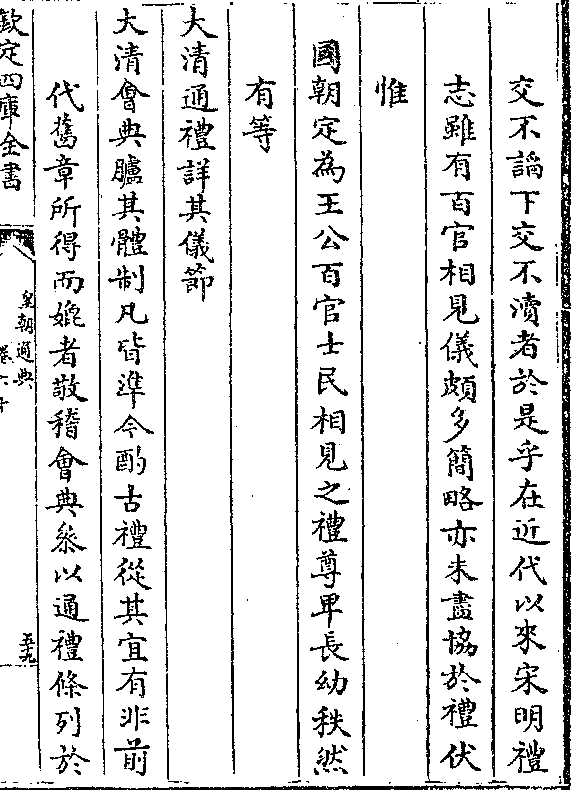 交不謟下交不瀆者於是乎在近代以來宋明禮
志雖有百官相見儀頗多簡略亦未盡協於禮伏
惟
國朝定為王公百官士民相見之禮尊卑長幼秩然
有等
大清通禮詳其儀節
大清會典臚其體制凡皆準今酌古禮從其宜有非前
代舊章所得而媲者敬稽會典叅以通禮條列於
欽定四庫全書
皇朝通典
卷六十
五十九